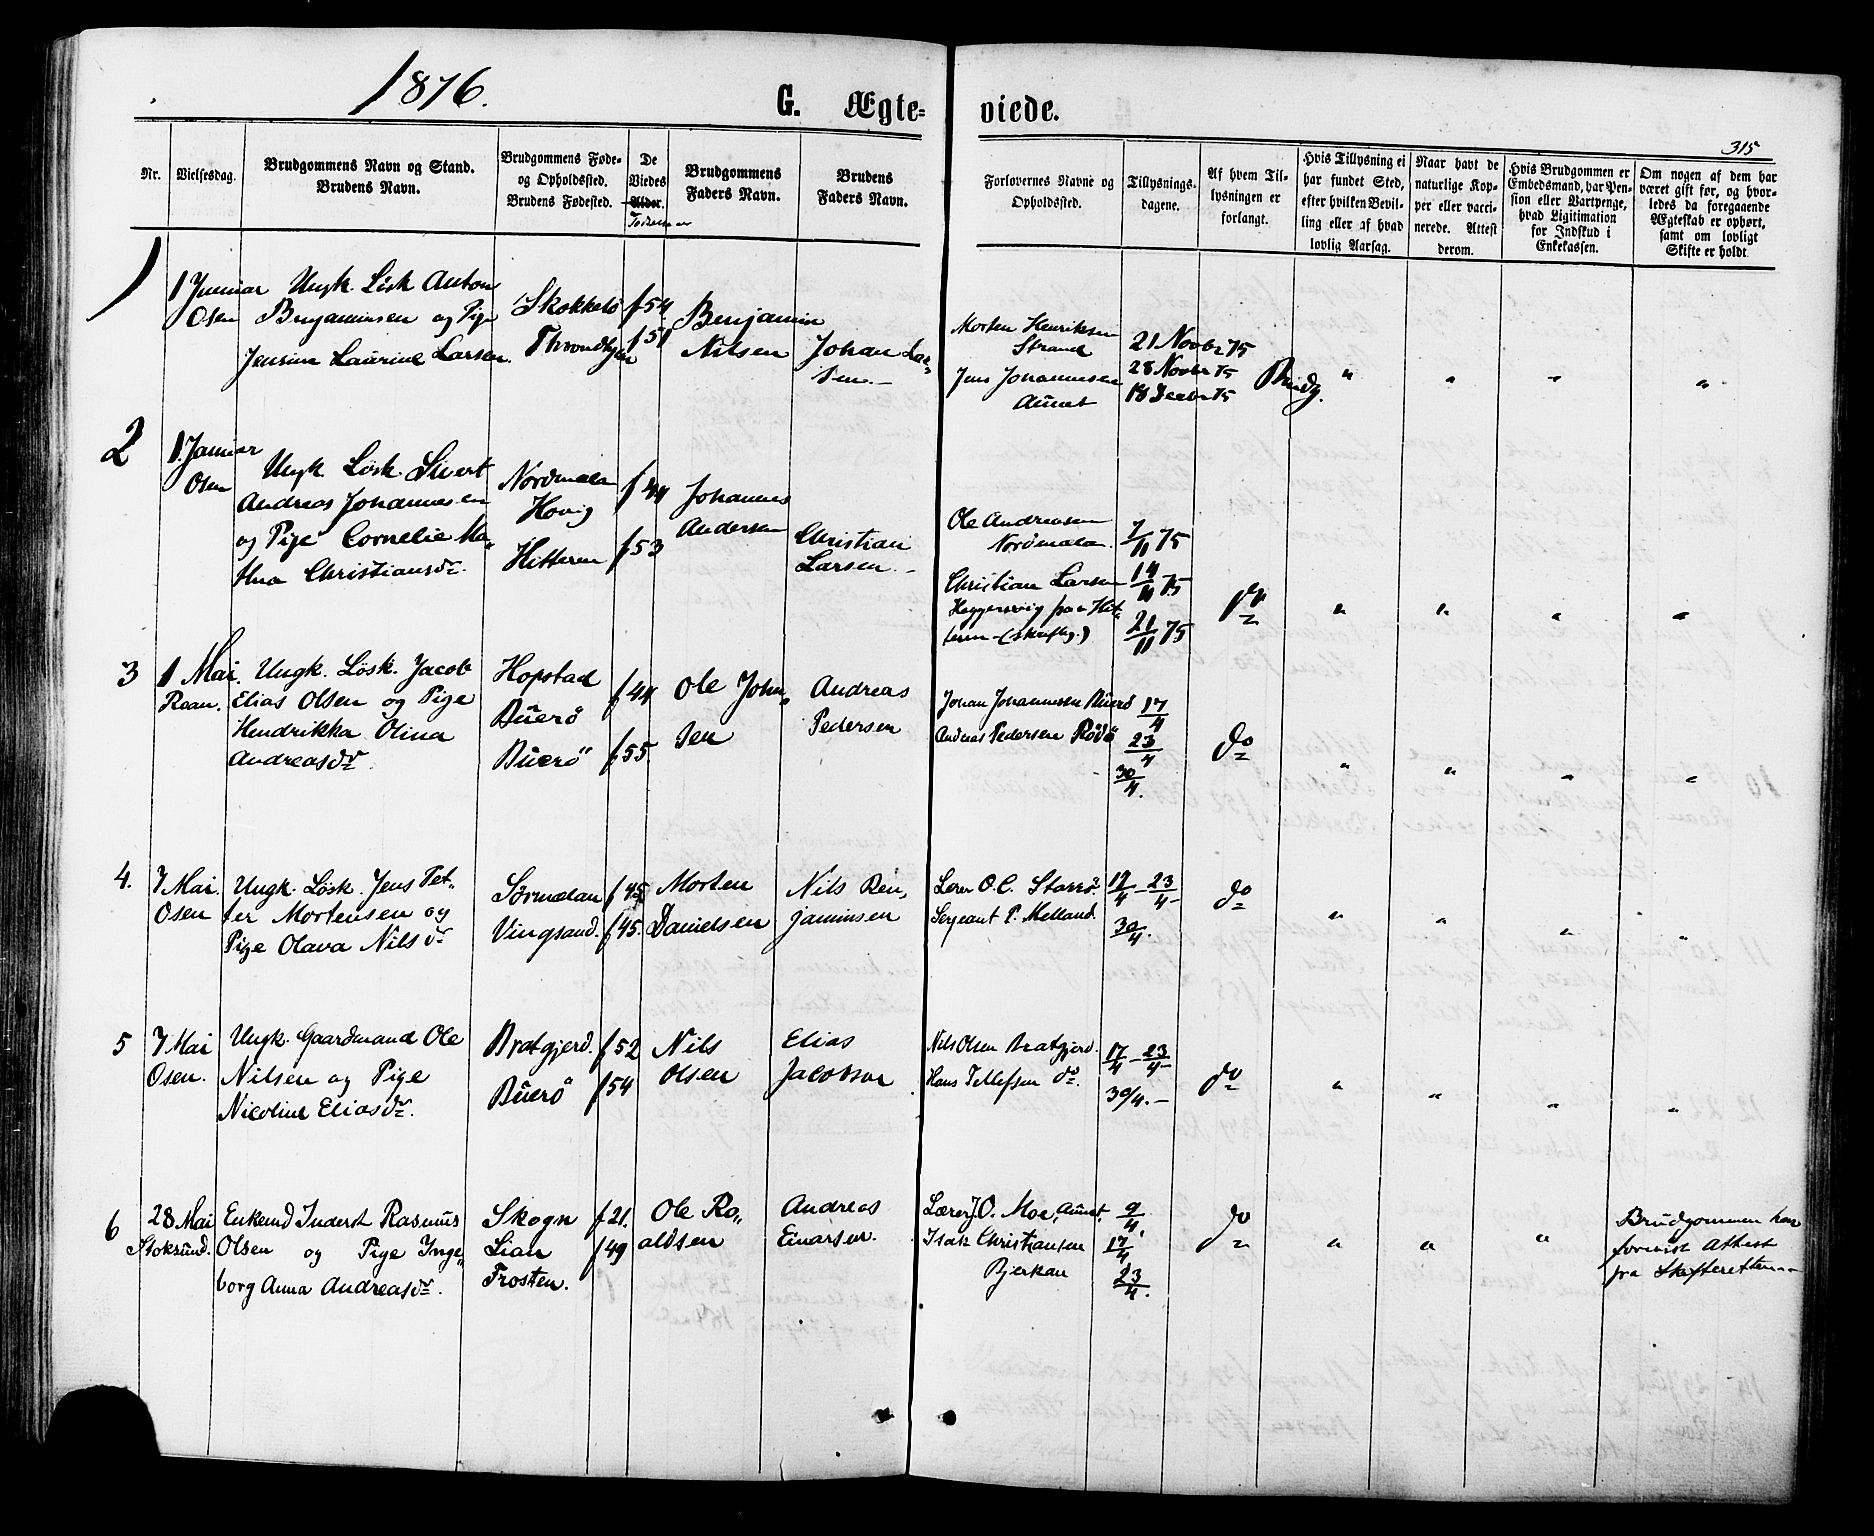 1876.
G. Ægte= viede.
315
Nr.
Vielsesdag.
Brudgommens Navn og Stand.
Brudens Navn.
Brudgommens Føde-
og Opholdssted.
Brudens Fødested.
De
Viedes
Alder.
Brudgommens
Faders Navn.
Brudens
Faders Navn.
Forlovernes Navne og
Opholdssted.
Tillysnings-
dagene.
Af hvem Til-
lysningen er
forlangt.
Hvis Tillysning ei
har fundet Sted,
efter hvilken Bevil-
ling eller af hvad
lovlig Aarsag.
Naar havt de
naturlige Kop-
per eller vacci-
nerede. Attest
derom.
Hvis Brudgommen er
Embedsmand, har Pen-
sion eller Vartpenge,
hvad Ligitimation
for Indskud i
Enkekassen.
Om nogen af dem har
været gift før, og hvor-
ledes da foregaaende
Ægteskab er ophørt,
samt om lovligt
Skifte er holdt.
1
1 Januar
Osen
Ungk. Løsk Anton
Benjaminsen og Pige
Jensine Laurine Larsen.
Skokkelö
Throndhjem
f 54
f 51
Benjamin
Nilsen
Johan Lar„
sen.—
Morten Henriksen
Strand
Jens Johannesen
Aunet
21 Novbr 75
28 Novbr 75
18 Decbr 75
Brudg.
" " " "
2
1. Januar
Osen
Ungk Løsk. Sivert
Andreas Johannesen
og Pige Cornelie Ma„
thea Christiansdr.
Nordmelan
Hovig
Hitteren
f 44
f 53
Johannes
Andersen
Christian
Larsen.—
Ole Andreasen
Nordmelan.
Christian Larsen
Heggersvig paa Hit„
teren—(skriftlg.)
7/11 75
14/11 75
21/11 75
do
" " " "
3
1 Mai.
Roan.
Ungk. Løsk. Jacob
Elias Olsen og Pige
Hendrikka Olina
Andreasdr.
Hopstad
Buerö
Buerö
f 44
f 55.
Ole John„
sen
Andreas
Pedersen
Johan Johannesen Buerö
Andreas Pedersen Rödö
17/4
23/4
30/4.
do
" " " "
4.
7 Mai.
Osen
Ungk. Løsk. Jens Pet„
ter Mortensen og
Pige Olava Nilsdr
Sörmelan
Vingsand.
f 45
f 45.
Morten
Danielsen
Nils Ben„
jaminsen
Lærer O. C. Starrö.
Sergeant P. Melland.
17/4 – 23/4 –
30/4.
do
" " " "
5
7 Mai
Osen.
Ungk. Gaardmand Ole
Nilsen og Pige
Nicoline Eliasdr.
Bratgjerd.
Buerö
f 52
f 54
Nils
Olsen
Elias
Jacobsen
Nils Olsen Bratgjerd.
Hans Tellefsen do.
17/4 – 23/4 –
30/4.–
do
" " " "
6
28 Mai
Stoksund.
Enkemd Inderst Rasmus
Olsen og Pige Inge„
borg Anna Andreasdr.
Skogn
Lian
Frosten.
f 21.
f 49
Ole Ro„
aldsen
Andreas
Einarsen.
Lærer J. O. Moe, Aunet,
Isak Christiansen
Bjerkan
9/4.
17/4
23/4.
do
" " "
Brudgommen har
forevist Attest
fra Skifteretten.—